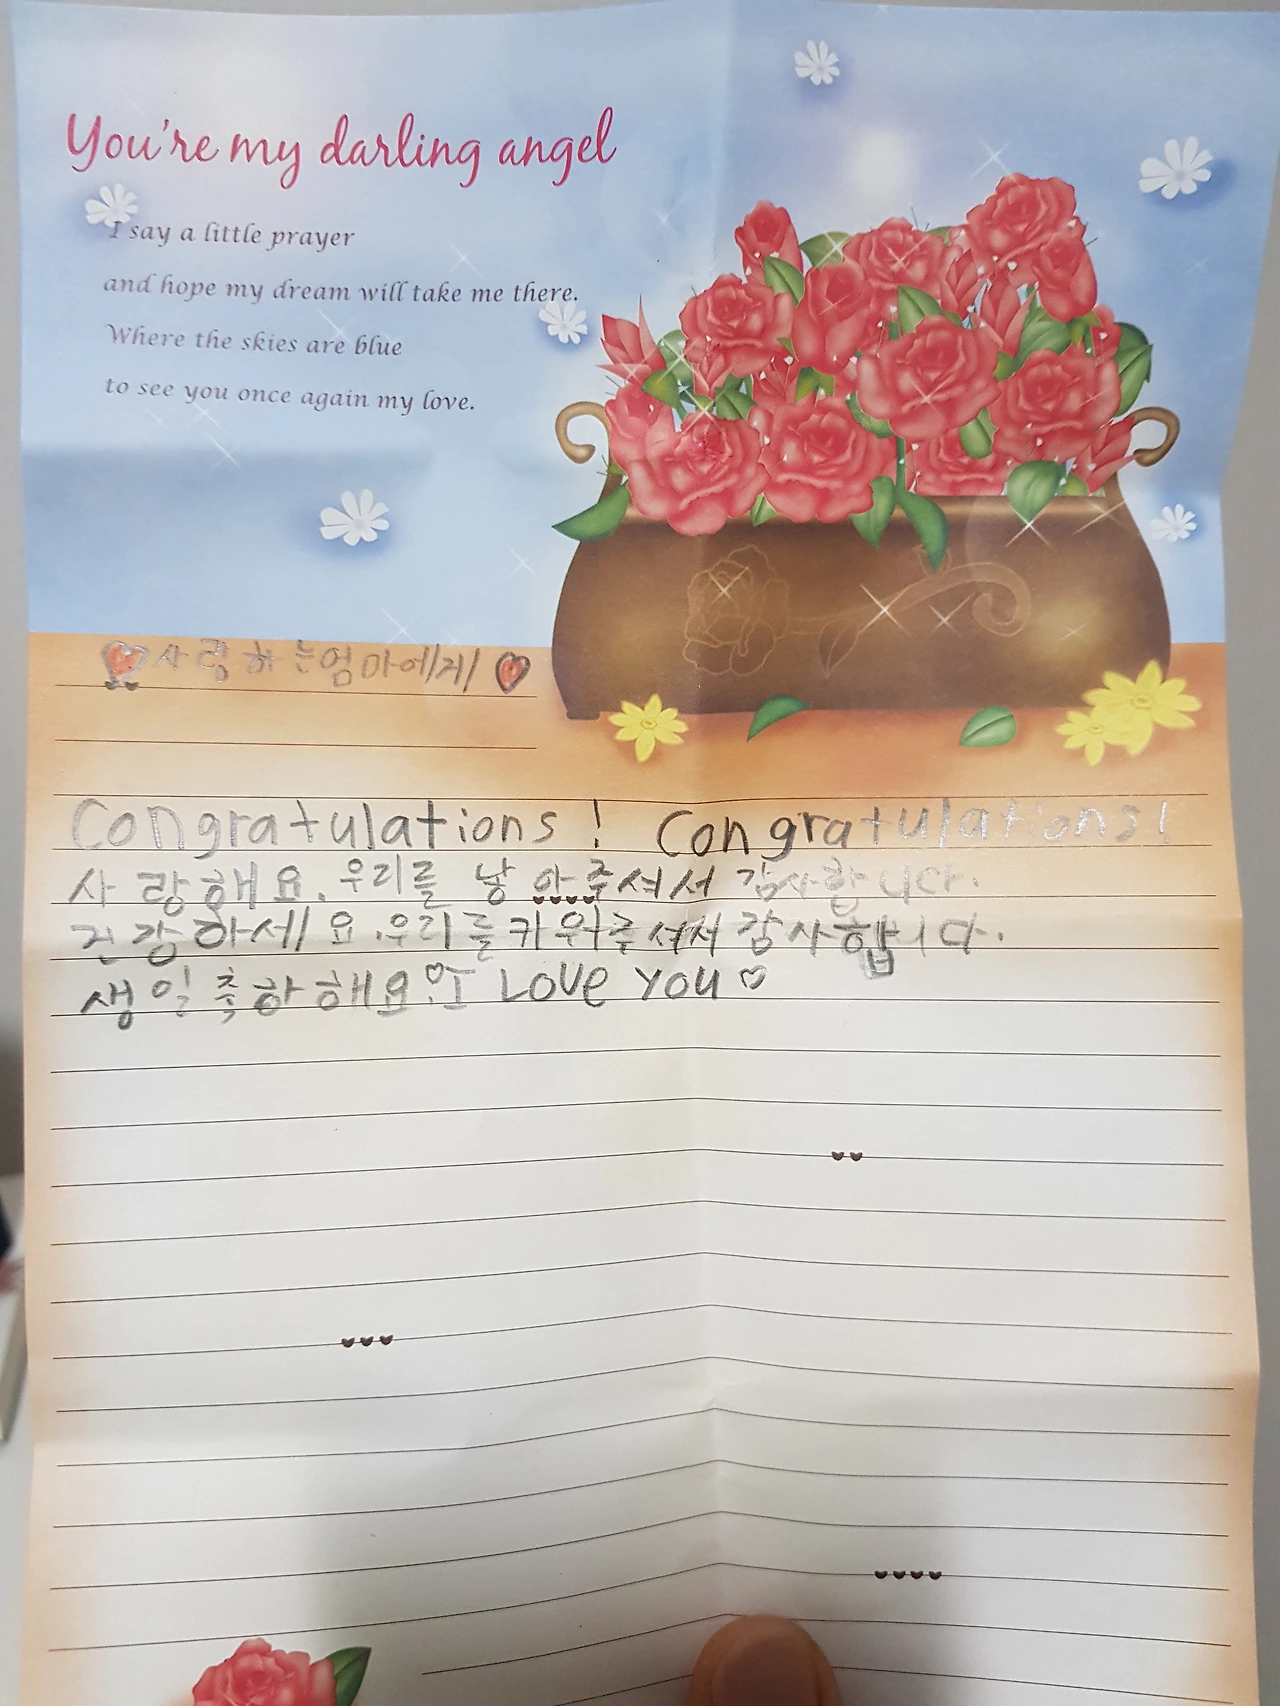 You're my darling angel
I say a little prayer
and hope my dream will take me there.
Where the skies are blue
to see you once again my love.
♥사랑하는엄마에게♥
Congratulations! Congratulations!
사랑해요.우리를 낳아주셔서 감사합니다.
건강하세요.우리를키워주셔서 감사합니다.
생일축하해요♡I Love you♡